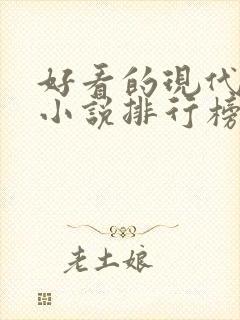 好看的現代
小説排行榜
老土娘